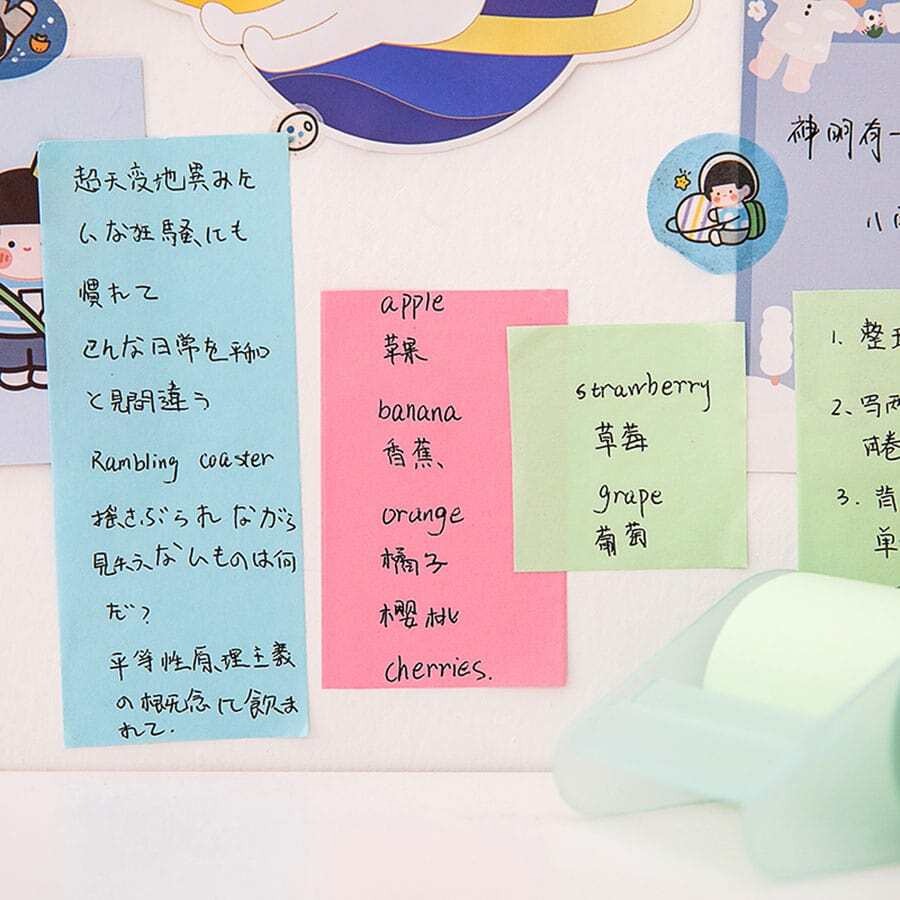 超天変地異みた
いな狂騒にも
慣れて
こんな日常を平和
と見間違う
Rambling coaster
揺さぶられながら
見失えないものは何
だ?
平等性原理主義
の概念に飲ま
れて.
apple
苹果
banana
香蕉
orange
橘子
樱桃
cherries.
strawberry
草莓
grape
葡萄
神明有一
1. 整
2、写两
3. 背
单